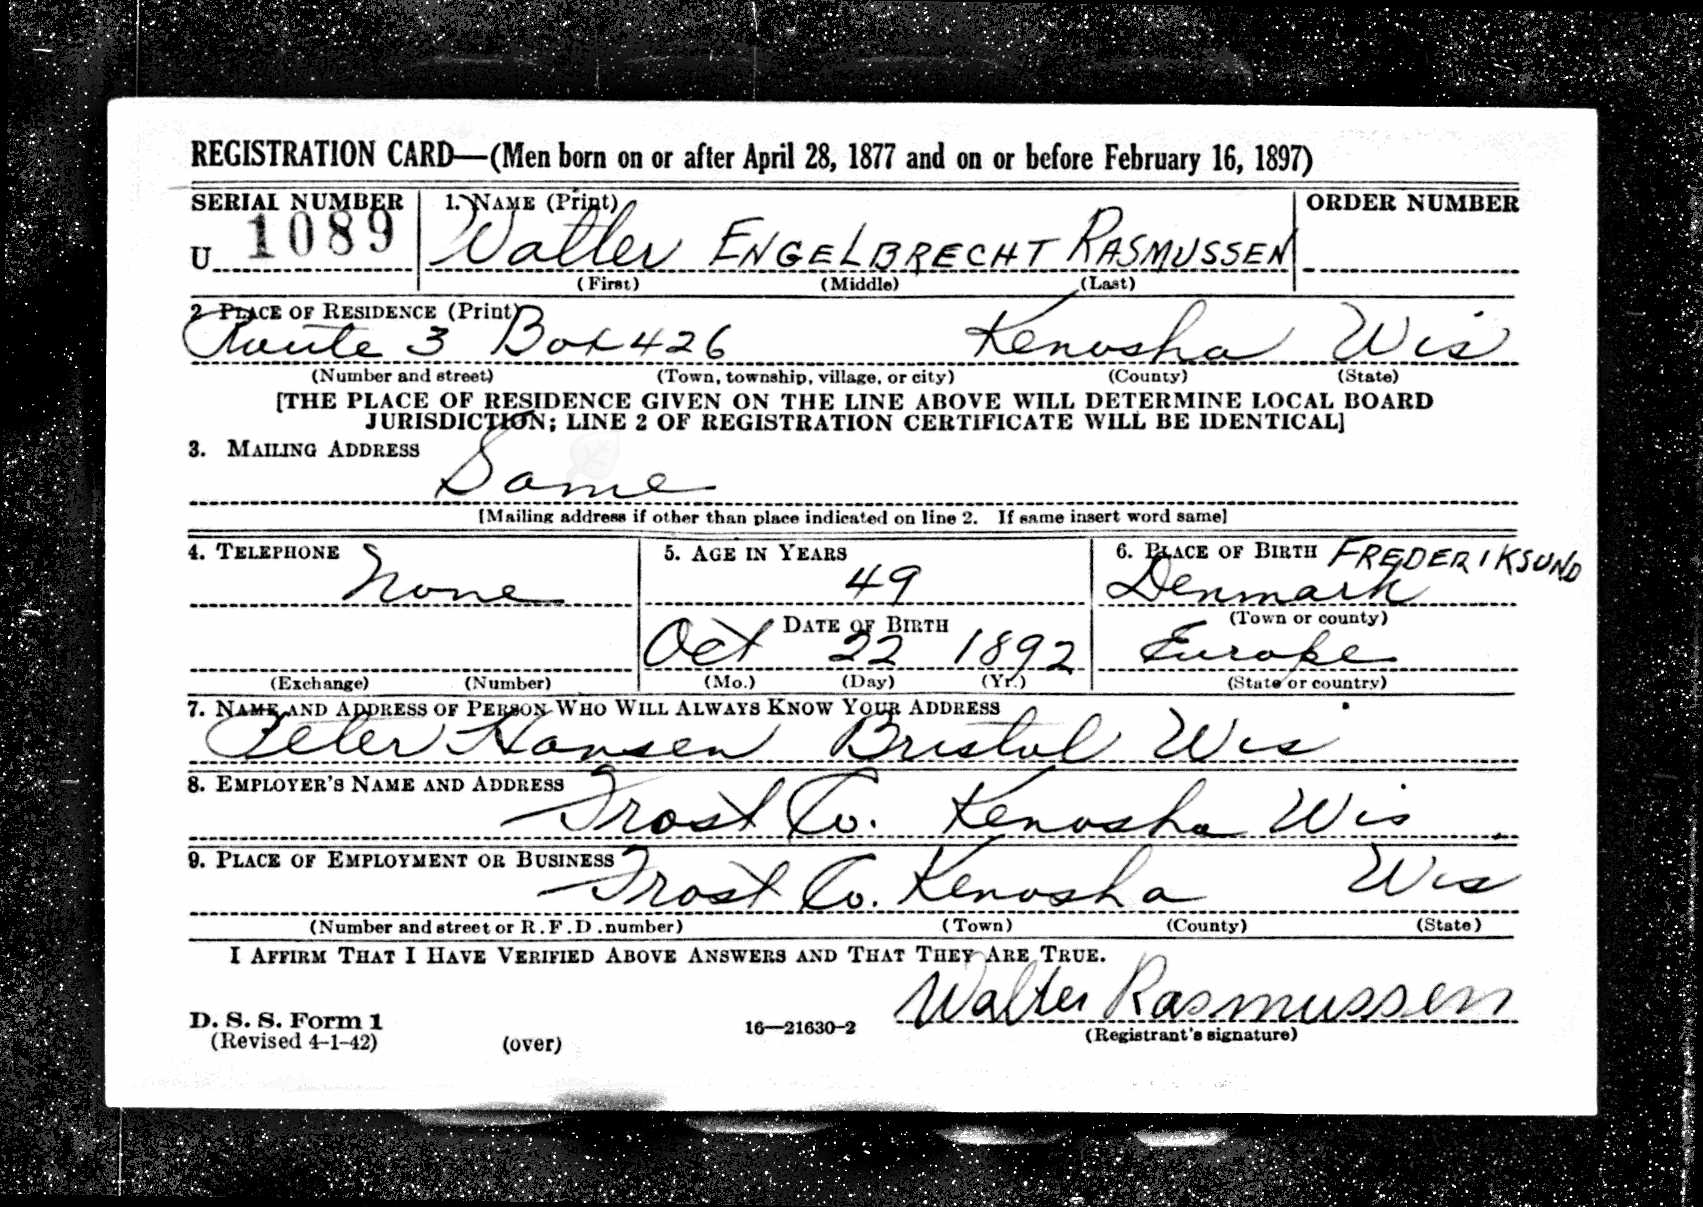 REGISTRATION CARD—(Men born on or after April 28, 1877 and on or before February 16, 1897)
SERIAL NUMBER
1. NAME (Print)
ORDER NUMBER
U 1089
Walter ENGELBRECHT RASMUSSEN
(First) (Middle) (Last)
2 PLACE OF RESIDENCE (Print)
Route 3 Box 426 Kenosha Wis
(Number and street) (Town, township, village, or city) (County) (State)
[THE PLACE OF RESIDENCE GIVEN ON THE LINE ABOVE WILL DETERMINE LOCAL BOARD
JURISDICTION; LINE 2 OF REGISTRATION CERTIFICATE WILL BE IDENTICAL]
3. MAILING ADDRESS
Same
[Mailing address if other than place indicated on line 2. If same insert word same]
4. TELEPHONE
None
(Exchange) (Number)
5. AGE IN YEARS
49
DATE OF BIRTH
Oct 22 1892
(Mo.) (Day) (Yr.)
6. PLACE OF BIRTH FREDERIKSUND
Denmark
(Town or county)
Europe
(State or country)
7. NAME AND ADDRESS OF PERSON WHO WILL ALWAYS KNOW YOUR ADDRESS
Peter Hansen Bristol Wis
8. EMPLOYER'S NAME AND ADDRESS
Frost Co. Kenosha Wis
9. PLACE OF EMPLOYMENT OR BUSINESS
Frost Co. Kenosha Wis
(Number and street or R.F.D. number) (Town) (County) (State)
I AFFIRM THAT I HAVE VERIFIED ABOVE ANSWERS AND THAT THEY ARE TRUE.
Walter Rasmussen
(Registrant's signature)
D. S. S. Form 1
(Revised 4-1-42) (over) 16—21630-2